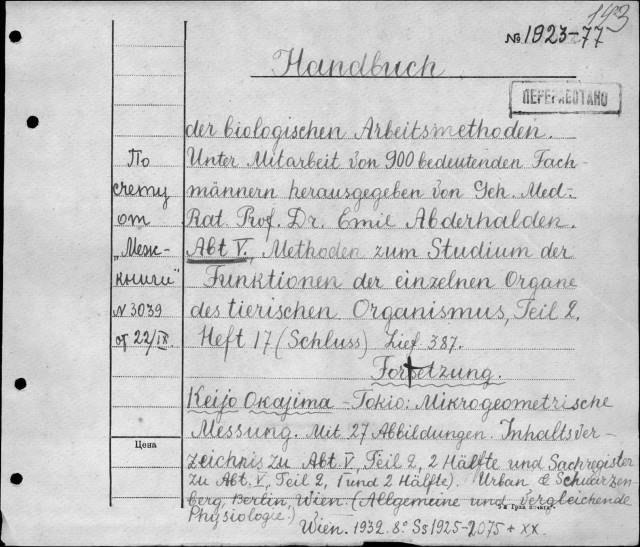 143
№ 1923-77
Handbuch
ПЕРЕРАБОТАНО
der biologischen Arbeitsmethoden.
Unter Mitarbeit von 900 bedeutenden Fach-
männern herausgegeben von Geh. Med.
Rat. Prof. Dr. Emil Abderhalden.
Abt V., Methoden zum Studium der
Funktionen der einzelnen Organe
des tierischen Organismus, Teil 2.
Heft 17 (Schluss) Lief. 387.
Forsetzung.
Keijo Okajima - Tokio: Mikrogeometrische
Messung. Mit 27 Abbildungen. Inhaltsver-
zeichnis zu Abt. V, Teil 2, 2 Hälfte und Sachregister
zu Abt. V, Teil 2, 1 und 2 Hälfte). Urban & Schwarzen-
berg, Berlin, Wien (Allgemeine und vergleichende
Physiologie.)
Wien. 1932. 8° Ss 1925-2075 + XX.
По
счету
от
„Меж-
книги"
№ 3039
от 22/IX.
Цена